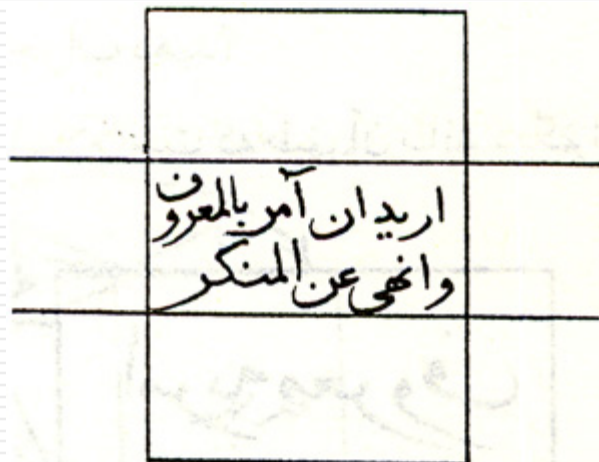 اريد ان آمر بالمعروف
وانهى عن المنكر